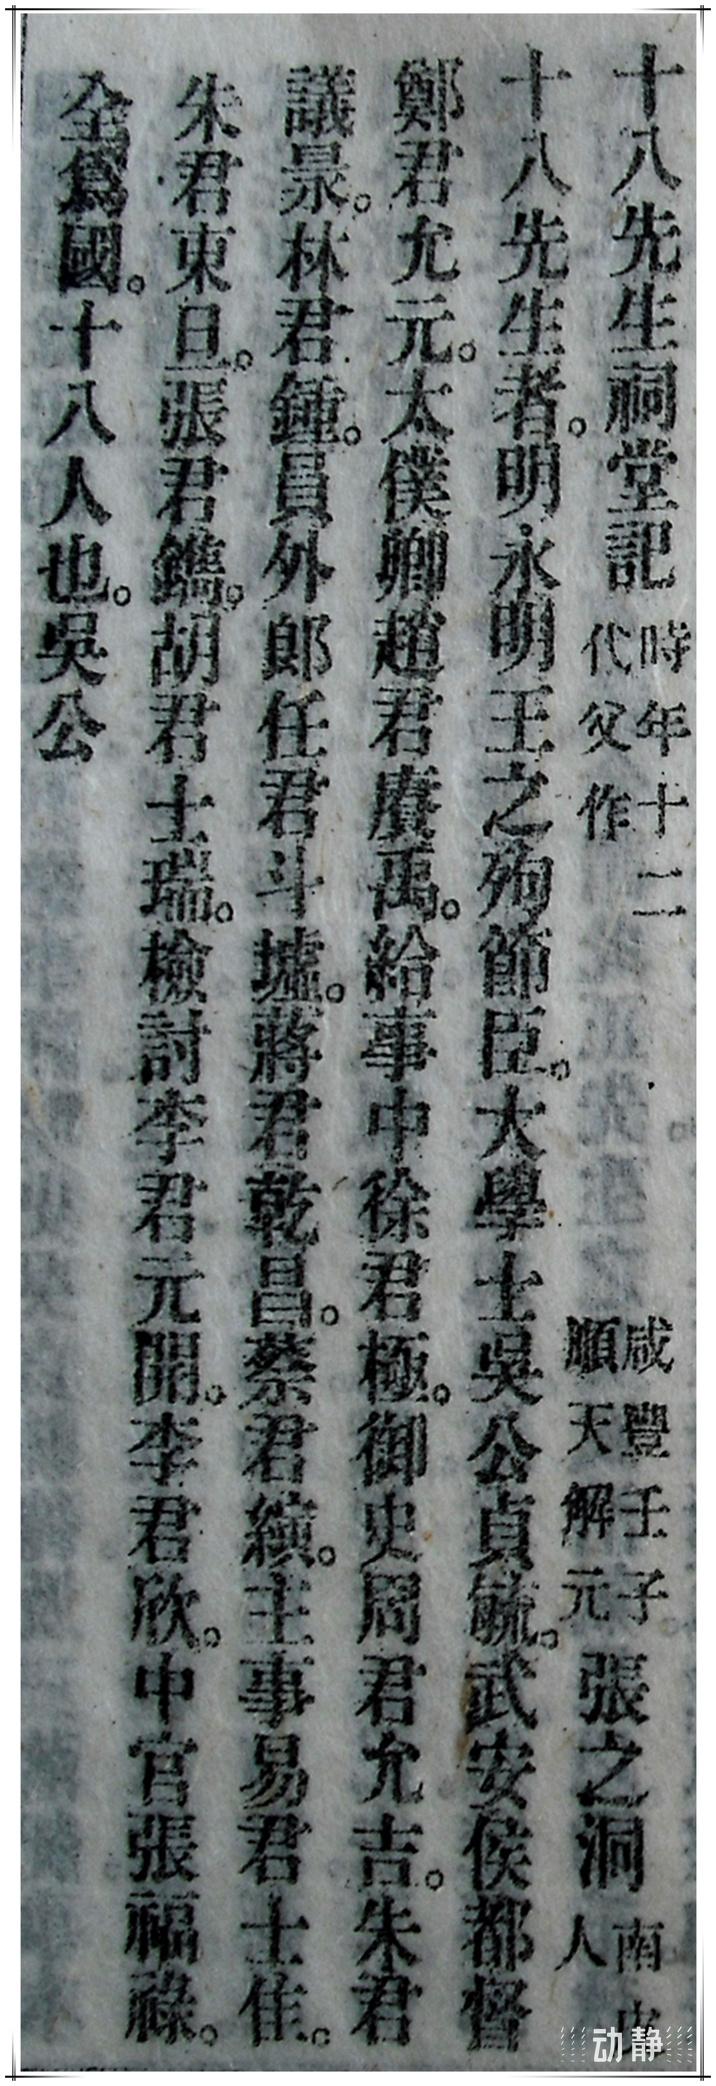 十八先生祠堂記 時年十二代父作 咸豐壬子順天解元 張之洞 南皮人
十八先生者。明永明王之殉節臣。大學士吳公貞毓。武安侯都督
鄭君允元。太僕卿趙君賡禹。給事中徐君極。御史周君允吉。朱君
議㫤。林君鍾。員外郎任君斗墟。蔣君乾昌。蔡君縯。主事易君士佳。
朱君東旦。張君鐫。胡君士瑞。檢討李君元開。李君欣。中官張福祿。
全為國。十八人也。吳公
动静